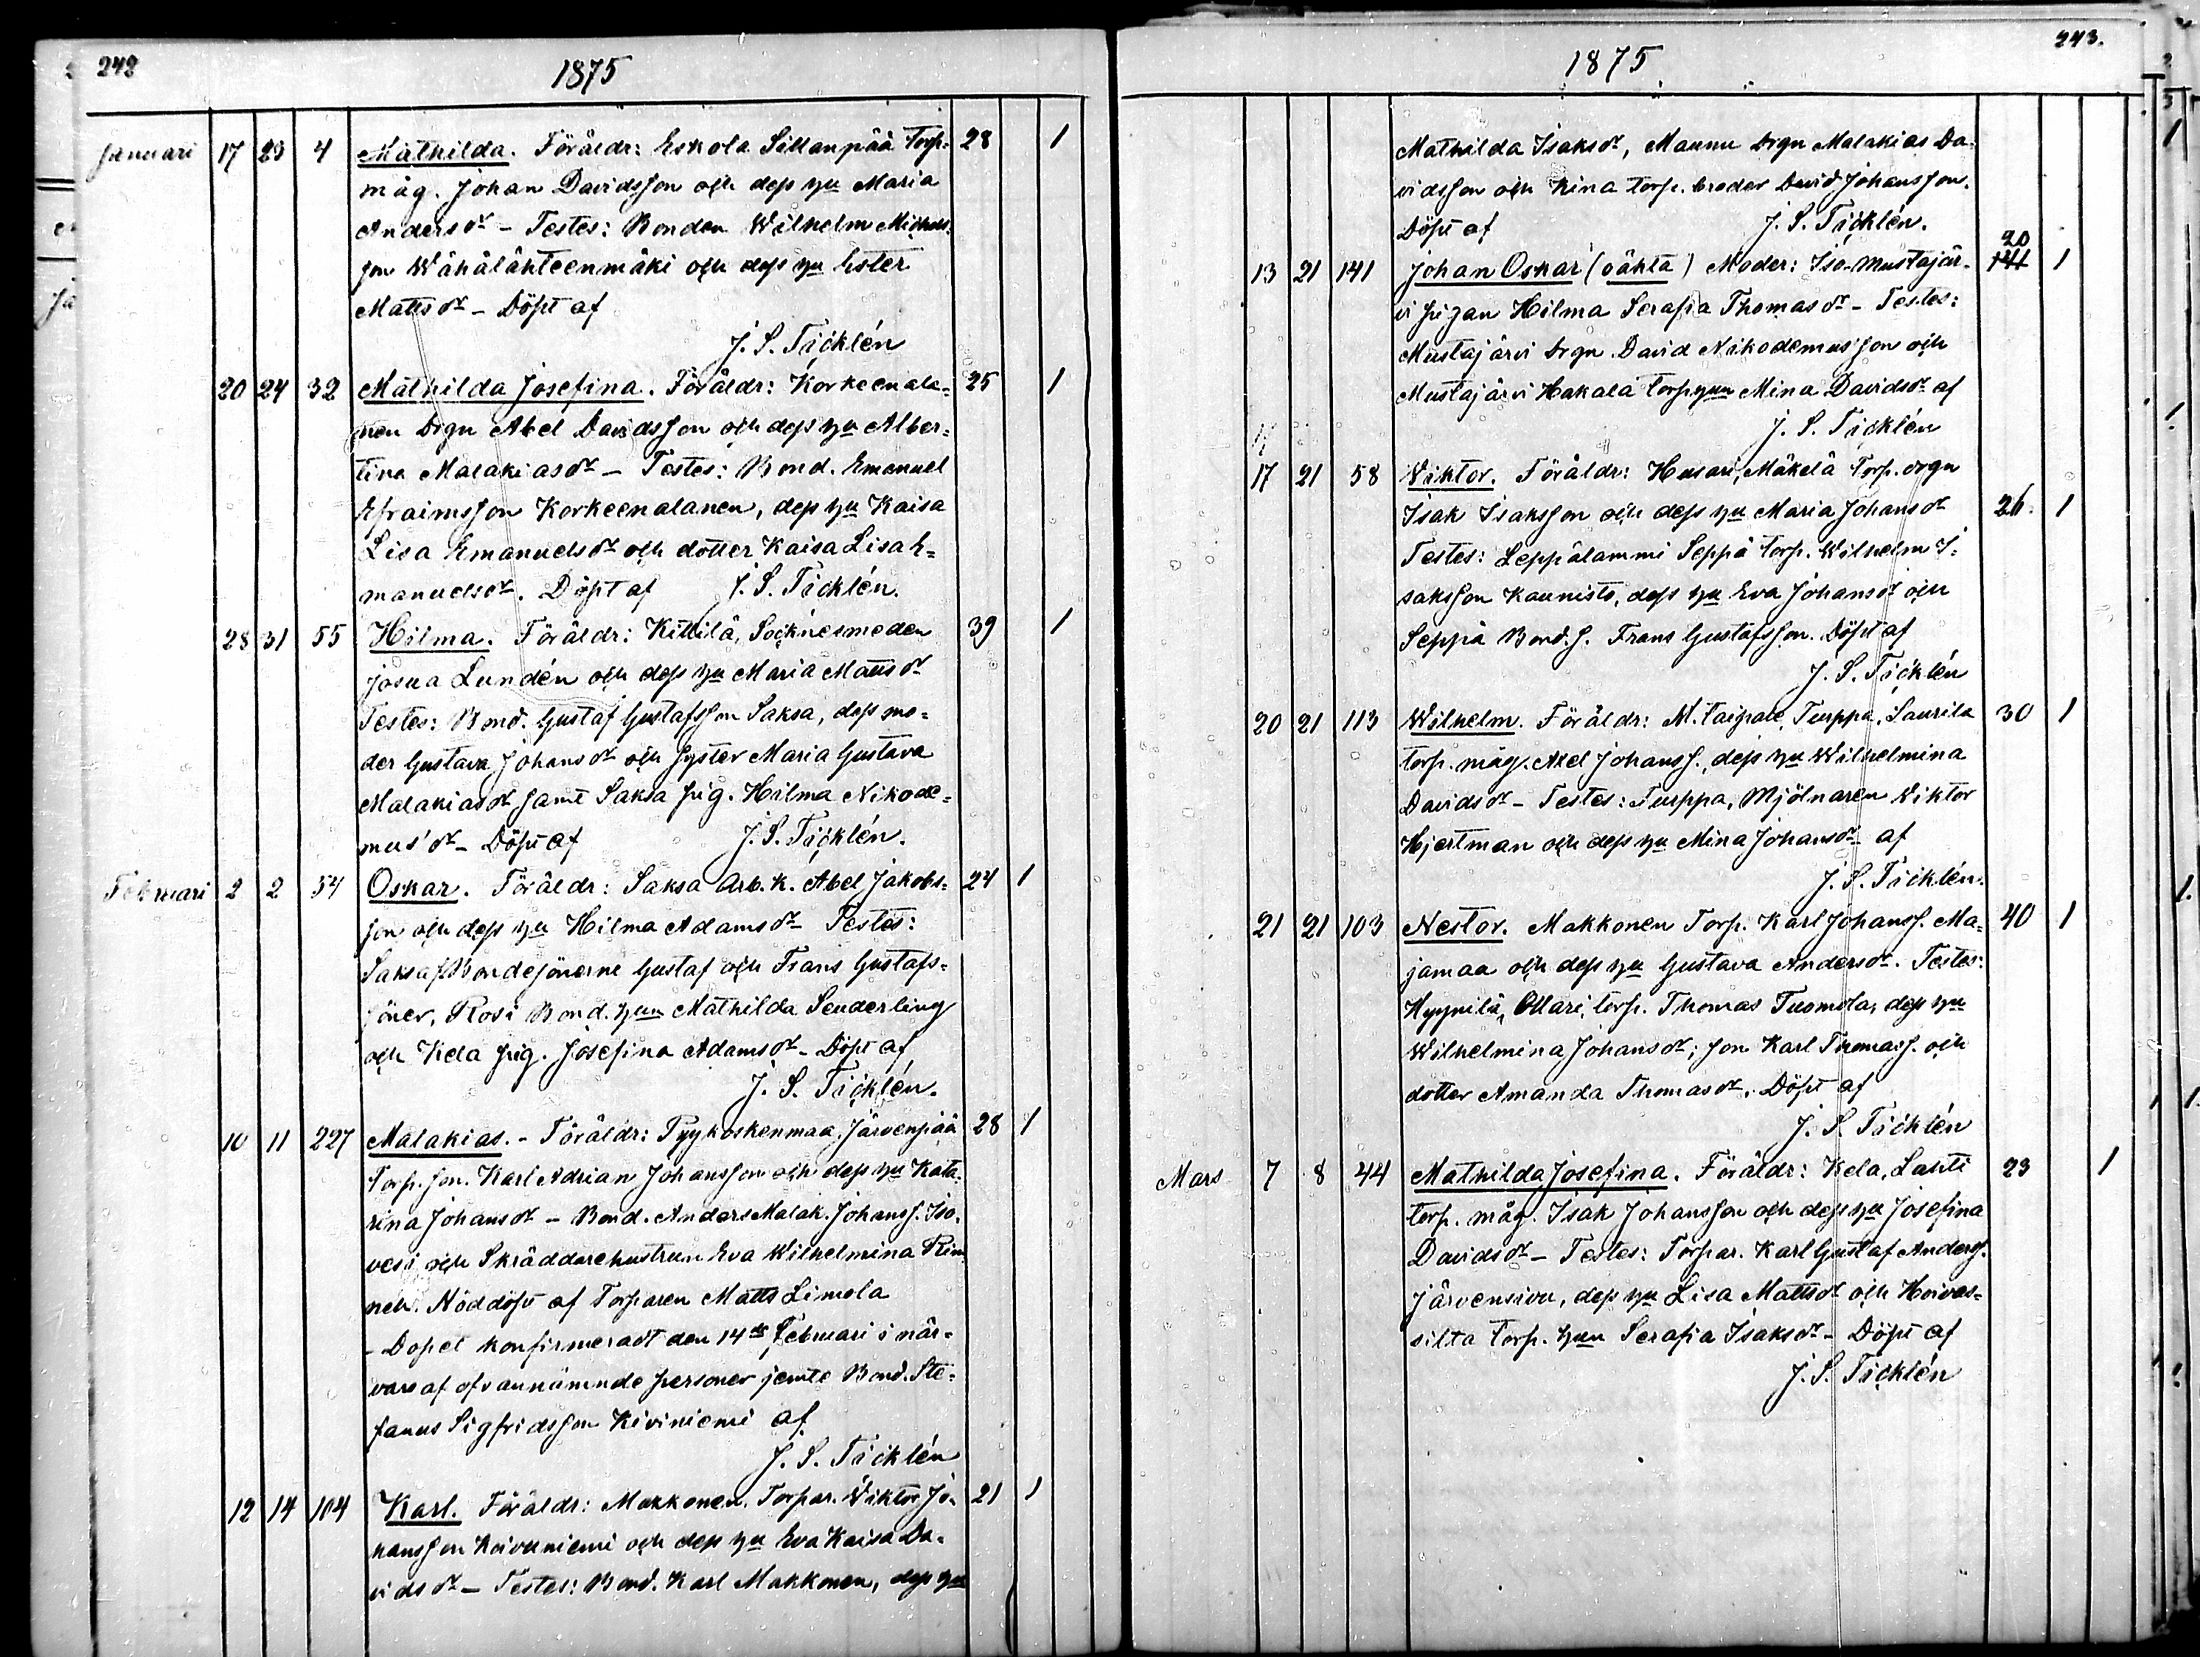 242
1875
Januari 17 23 4 Mathilda. Föräldr: Eskola Sillanpää Torp. 28 1
måg. Johan Davidsson och dess hu Maria
Andersdr – Testes: Bonden Wilhelm Michels-
son Wähälähteenmäki och dess hu Ester
Mattsdr – Döpt af
J. S. Täcklén
20 24 32 Mathilda Josefina. Föräldr: Korkeenala- 25 1
nen drgn Abel Davidsson och dess hu Alber-
tina Malakiasdr – Testes: Bond. Emanuel
Efraimsson Korkeenalanen, dess hu Kaisa
Lisa Emanuelsdr och dotter Kaisa Lisa E-
manuelsdr. Döpt af J. S. Täcklén.
28 31 55 Hilma. Föräldr: Kittilä, Socknesmeden 39 1
Josua Lundén och dess hu Maria Mattsdr
Testes: Bond. Gustaf Gustafsson Saksa, dess mo-
der Gustava Johansdr och syster Maria Gustava
Malakiasdr samt Saksa pig. Hilma Nikode-
mus'dr – Döpt af J. S. Täcklén.
Februari 2 2 54 Oskar. Föräldr: Saksa Arb. K. Abel Jakobs- 24 1
son och dess hu Hilma Adamsdr Testes:
Saksa Bondesönerne Gustaf och Frans Gustafs-
söner, Rosi Bond. hun Mathilda Seuderling
och Kela pig. Josefina Adamsdr – Döpt af
J. S. Täcklén.
10 11 227 Malakias. – Föräldr: Tyykoskenmaa, Järvenpää 28 1
Torp. son. Karl Adrian Johansson och dess hu Kata-
rina Johansdr – Bond. Anders Malak. Johanss. Iso-
vesi och Skräddarehustrun Eva Wilhelmina Rin-
nen. Nöddöpt af Torparen Matts Limola
– Dopet konfirmeradt den 14de Februari i när-
varo af ofvannämnde personer jemte Bond. Ste-
fanus Sigfridsson Kiviniemi af
J. S. Täcklén
12 14 104 Karl. Föräldr: Makkonen. Torpar. Wiktor Jo- 21 1
hansson Koivuniemi och dess hu Eva Kaisa Da-
vidsdr – Testes: Bond. Karl Makkonen, dess hu
243.
1875
Mathilda Isaksdr, Maunu drgn Malakias Da-
vidsson och Kina torp. broder David Johansson.
Döpt af J. S. Täcklén.
13 21 141 Johan Oskar (oäkta) Moder: Iso-Mustajär- 20 141 1
vi pigan Hilma Serafia Thomasdr – Testes:
Mustajärvi drgn. David Nikodemusson och
Mustajärvi Hakala torp hun Mina Davidsdr af
J. S. Täcklén
17 21 58 Wiktor. Föräldr: Husari, Mäkelä Torp. drgn
Isak Isaksson och dess hu Maria Johansdr 26. 1
Testes: Leppälammi Seppä torp. Wilhelm I-
saksson Kaunisto, dess hu Eva Johansdr och
Seppä Bond. s. Frans Gustafsson. Döpt af
J. S. Täcklén
20 21 113 Wilhelm. Föräldr: M. Taipale, Turppa, Saurila 30 1
torp. måg. Axel Johanss., dess hu Wilhelmina
Davidsdr – Testes: Turppa, Mjölnaren Wiktor
Hjertman och dess hu Mina Johansdr af
J. S. Täcklén.
21 21 103 Nestor. Makkonen Torp. Karl Johanss. Ma- 40 1
jamaa och dess hu Gustava Andersdr. Testes:
Hyynilä, Ollari, torp. Thomas Tuomola, dess hu
Wilhelmina Johansdr; son Karl Thomass. och
dotter Amanda Thomasdr. Döpt af
J. S. Täcklén
Mars 7 8 44 Mathilda Josefina. Föräldr: Kela, Lahti 23 1
torp. måg. Isak Johansson och dess hu Josefina
Davidsdr – Testes: Torpar. Karl Gustaf Anderss.
Järvensivu, dess hu Lisa Mattsdr och Hoivas-
silta torp. hun Serafia Isaksdr – Döpt af
J. S. Täcklén